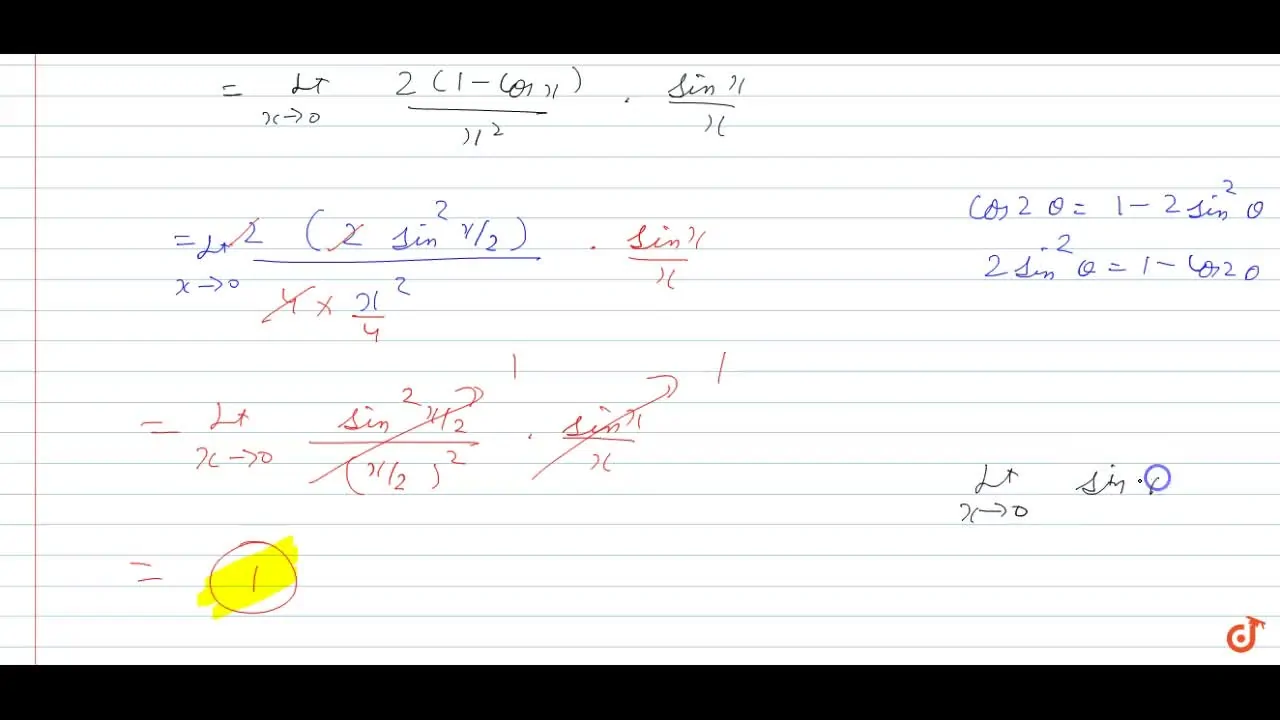 = Lt x→0 2(1-Cos x)/x² . sin x/x
= Lt x→0 2 (2 sin² x/2)/(4 × x²/4) . sin x/x
Cos 2θ = 1 - 2 sin² θ
2 sin² θ = 1 - Cos 2θ
1 1
= Lt x→0 sin² x/2/(x/2)² . sin x/x
Lt x→0 sin x
= 1